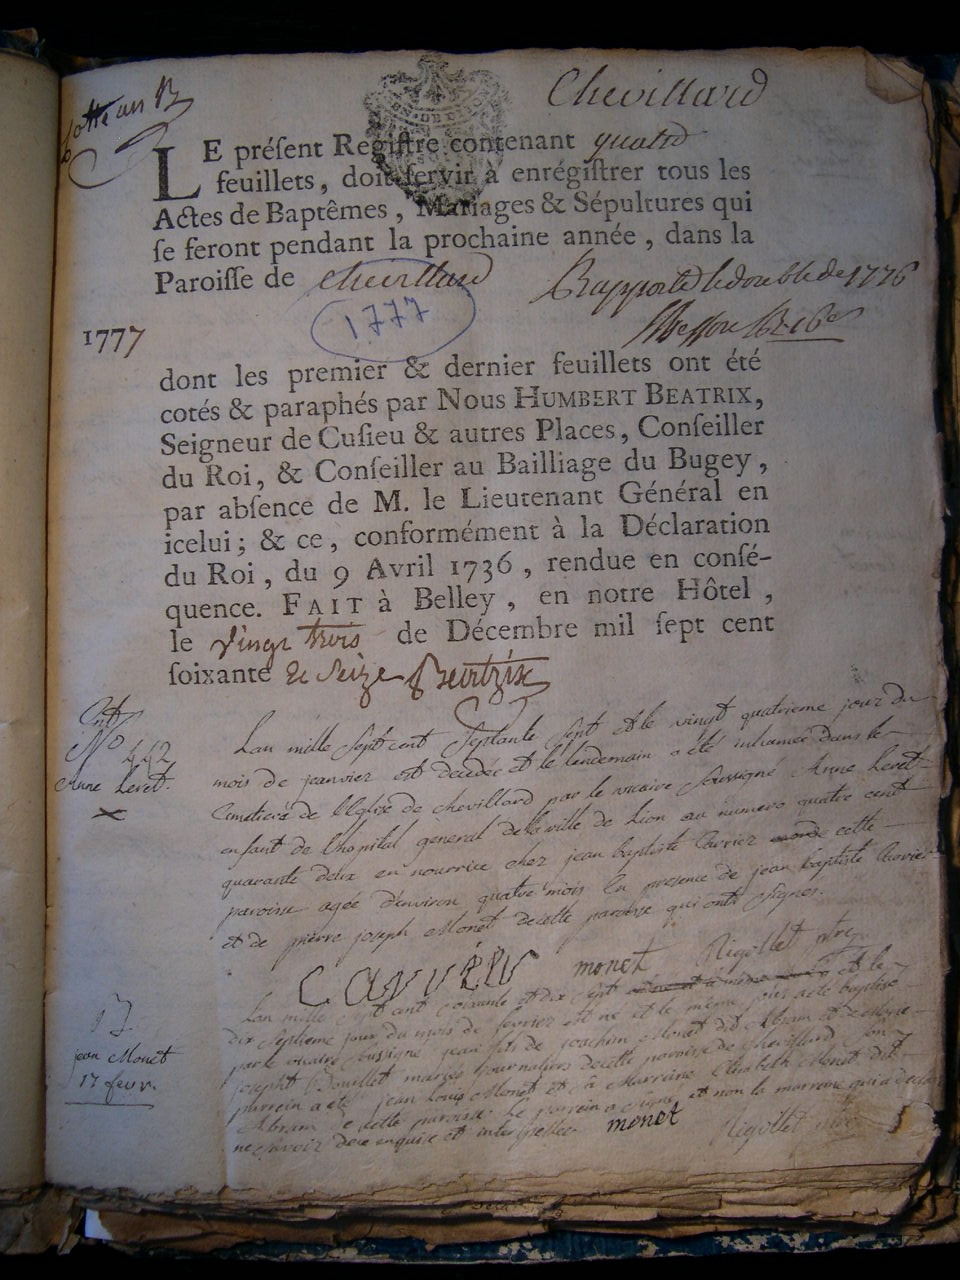 Chevillard
LE préſent Regiſtre contenant quatre
feuillets, doit ſervir à enrégiſtrer tous les
Actes de Baptêmes, Mariages & Sépultures qui
ſe feront pendant la prochaine année, dans la
Paroiſſe de chevillard
Rapporté le double de 1776
1777
1777
dont les premier & dernier feuillets ont été
cotés & paraphés par NOUS HUMBERT BEATRIX,
Seigneur de Cuſieu & autres Places, Conſeiller
du Roi, & Conſeiller au Bailliage du Bugey,
par abſence de M. le Lieutenant Général en
icelui; & ce, conformément à la Déclaration
du Roi, du 9 Avril 1736, rendue en conſé-
quence. FAIT à Belley, en notre Hôtel,
le vingt trois de Décembre mil ſept cent
ſoixante & Seize Beatrix
Ent
No 442
Anne Levet.
Lan mille Sept cent Septante Sept et le vingt quatrieme jour du
mois de janvier est decedée et le lendemain a été inhumée dans le
Cimetiere de l'Eglise de chevillard par le vicaire Soussigné Anne Levet
enfant de l'hopital géneral de la ville de Lion au numero quatre cent
quarante deux en nourrice chez jean baptiste Cavrier cette
paroisse agée d'environ quatre mois En presence de jean baptiste
et de pierre joseph Monet de cette paroisse qui ont Signes.
monet Rigollet vtre
jean Monet
17 fevr.
Lan mille Sept cent Soixante et dix Sept et le
dix Septieme jour du mois de fevrier est né et le même jour a été baptisé
par le vicaire Soussigné jean fils de joachim Monet dit Abram et de
josephte mariés journaliers de cette paroisse de Chevillard Son
parrein a eté jean Louis Monet et Sa Marreine Elisabeth Monet dit
Abram de cette paroisse Le parrein a Signé et non la marreine qui a declaré
ne Scavoir de ce enquise et interpellee monet Rigollet vtre